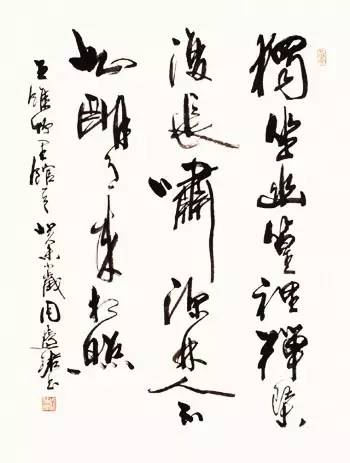 獨坐幽篁裡彈琴
復長嘯深林人不
知明月來相照
王維竹里館 癸未歲周慧珺书